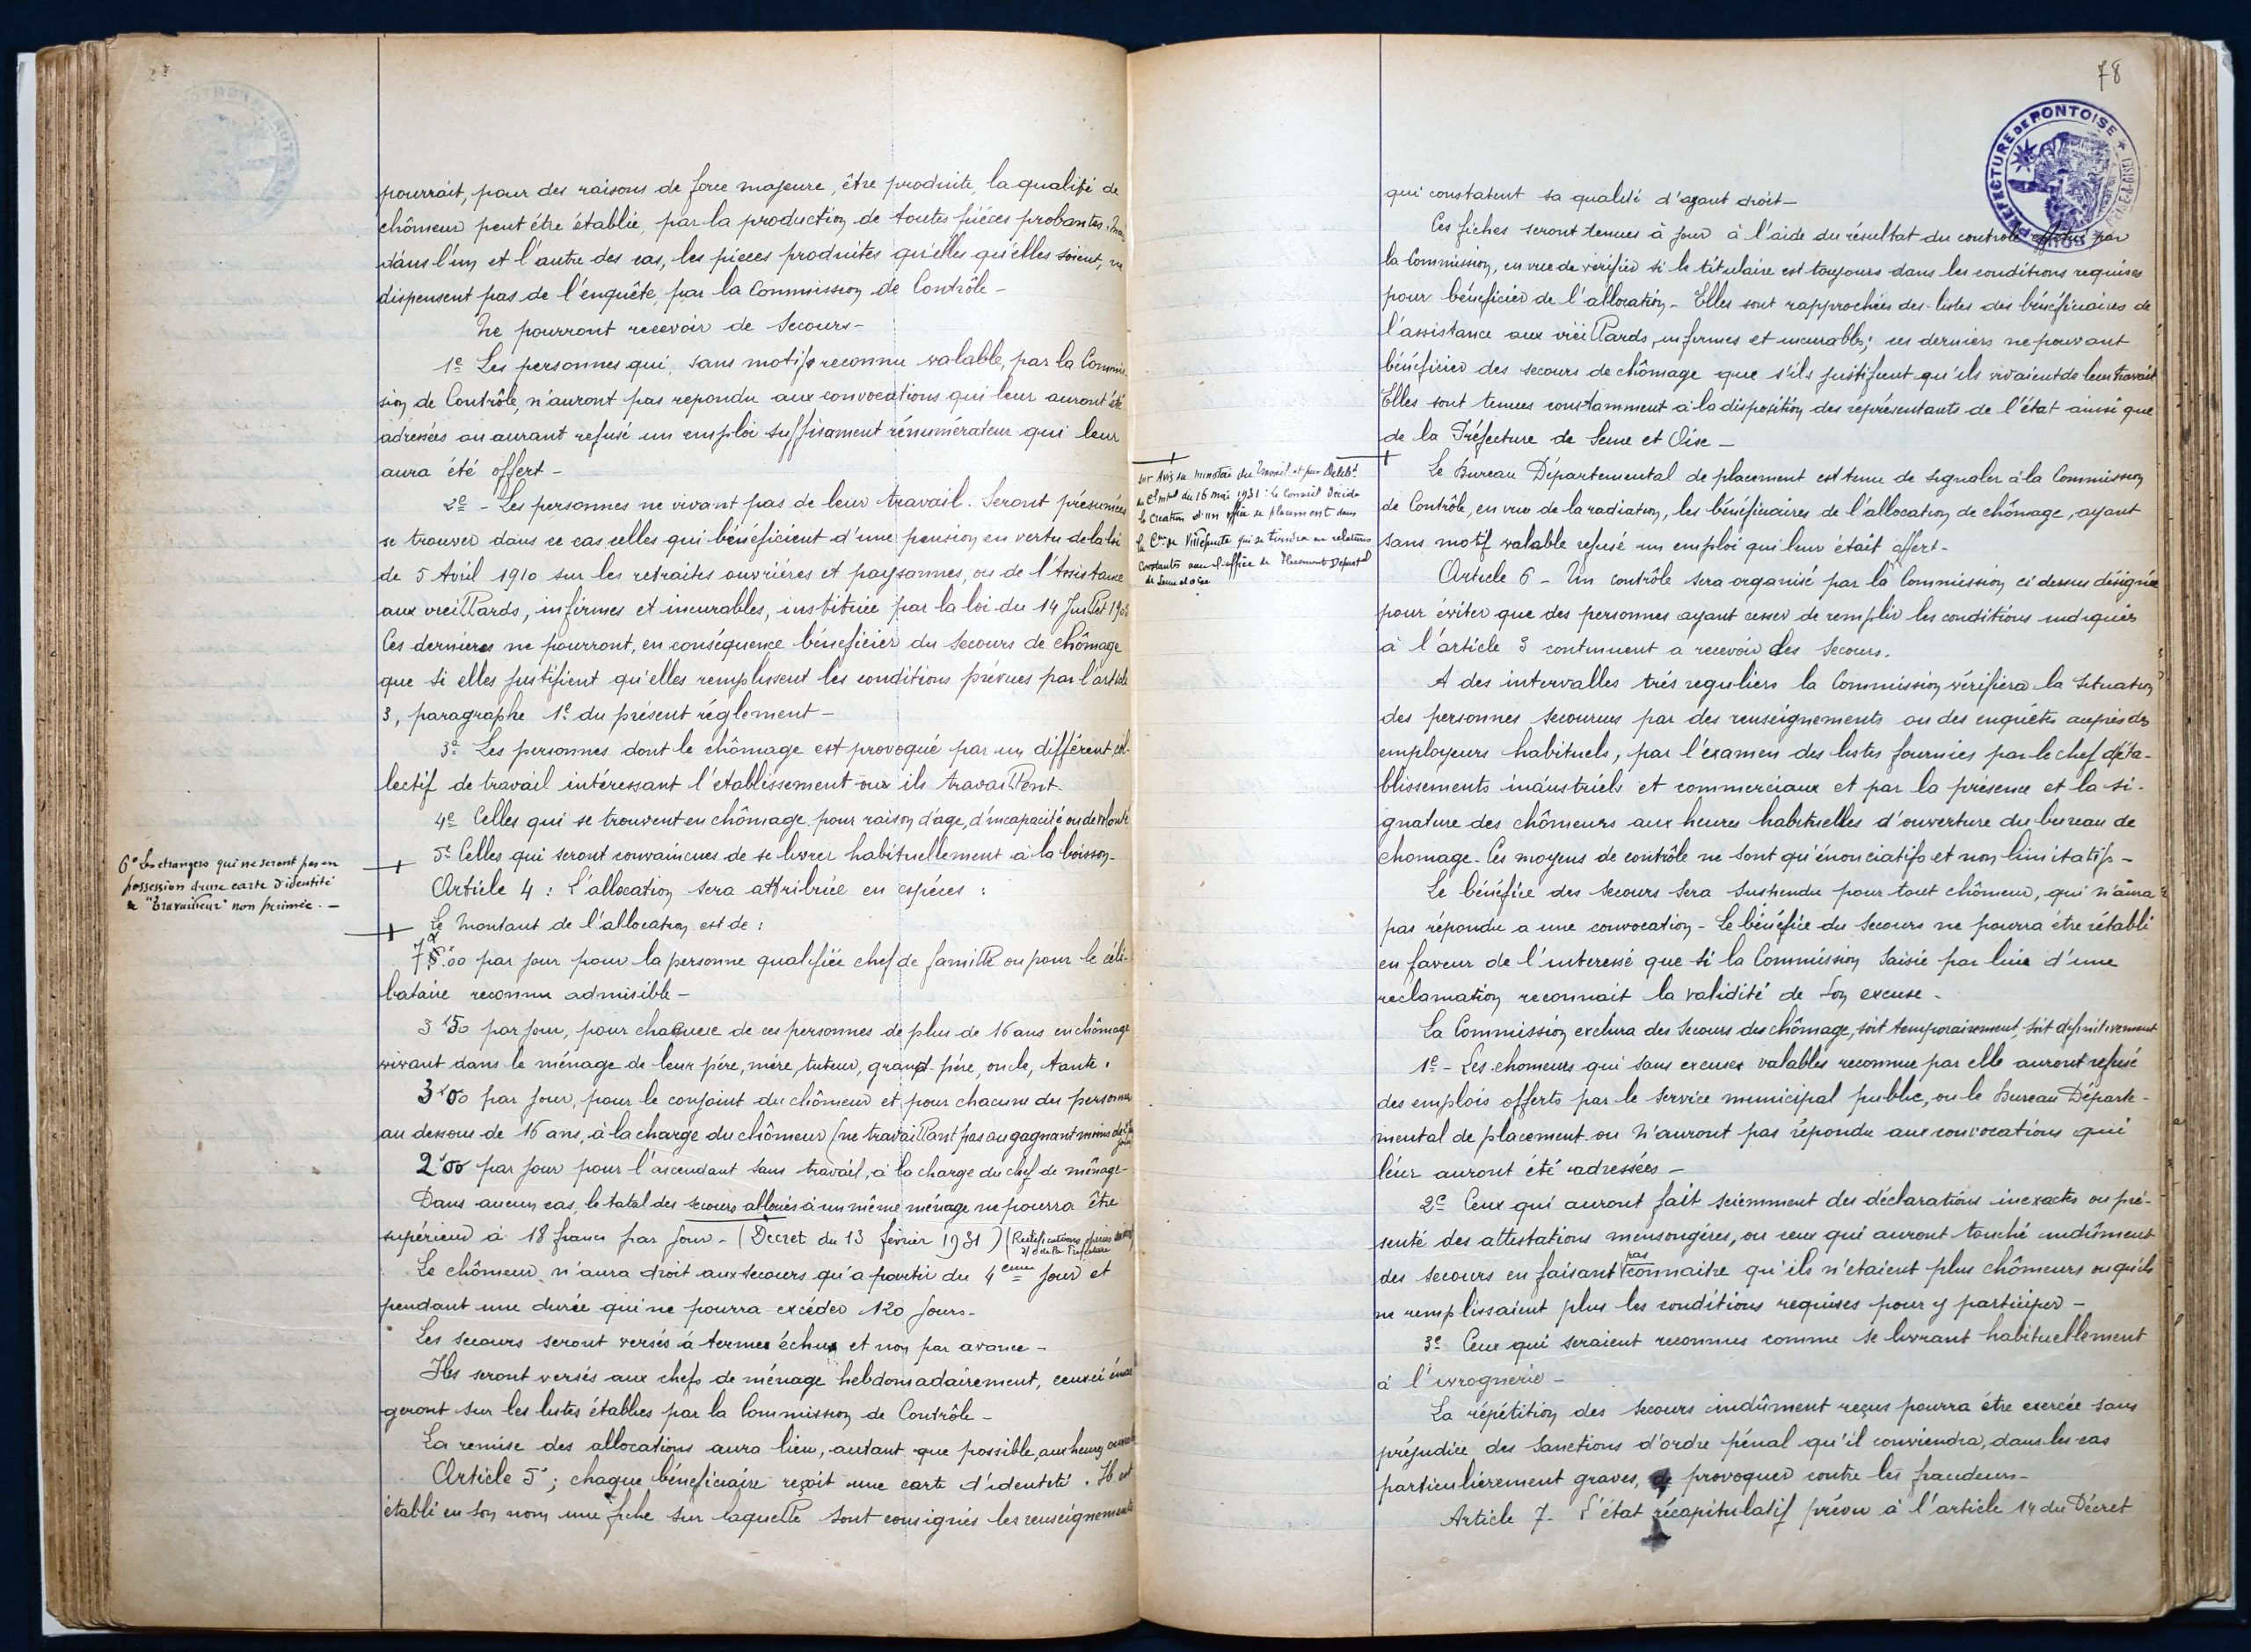 pourrait, pour des raisons de force majeure, être produite, la qualité de
chômeur peut être établie, par la production de toutes pièces probantes.
dans l'un et l'autre des cas, les pièces produites qu'elles qu'elles soient, ne
dispensent pas de l'enquête, par la Commission de Contrôle -
Ne pourront recevoir de Secours -
1e Les personnes qui, sans motifs reconnu valable, par la Commis-
sion de Contrôle, n'auront pas repondu aux convocations qui leur auront été
adressées ou aurant refusé un emploi suffisament rénumérateur qui leur
aura été offert -
2e - Les personnes ne vivant pas de leur travail. Seront présumées
se trouver dans ce cas celles qui bénéficient d'une pension en vertu de la loi
de 5 Avril 1910 sur les retraites ouvrières et paysannes, ou de l'Assistance
aux vieillards, infirmes et incurables, instituée par la loi du 14 Juillet 1905
Ces dernières ne pourront, en conséquence bénéficier du Secours de chômage
que si elles justifient qu'elles remplissent les conditions prévues par l'article
3, paragraphe 1e du présent règlement -
3e Les personnes dont le chômage est provoqué par un différent, col-
lectif de travail intéressant l'etablissement où ils travaillent.
4e Celles qui se trouvent en chômage pour raison d'age, d'incapacité ou de volonté
5e Celles qui seront convaincues de se livrer habituellement à la boisson -
6° Les etrangers qui ne seront pas en
possession d'une carte d'identité
de "travailleur" non périmée. -
Article 4 : L'allocation sera attribuée en espéces :
Le Montant de l'allocation est de :
7f.00 par jour pour la personne qualifiée chef de famille ou pour le céli-
bataire reconnu admisible -
3f50 par jour, pour chacune de ces personnes de plus de 16 ans en chômage
vivant dans le ménage de leur père, mère, tuteur, grand-père, oncle, tante.
3f00 par jour, pour le conjoint du chômeur et pour chacune des personnes
au dessous de 16 ans, à la charge du chômeur (ne travaillant pas ou gagnant moins de
2f00 par jour pour l'ascendant sans travail, à la charge du chef de ménage -
Dans aucun cas, le total des secours alloués à un même ménage ne pourra être
supérieur à 18 francs par jour - (Decret du 13 février 1931) (Rectifications
Le chômeur n'aura droit aux secours qu'a partir du 4eme jour et
pendant une durée qui ne pourra excéder 120 jours -
Les secours seront versés à termes échus et non par avance -
Ils seront versés aux chefs de ménage hebdomadairement, ceux ci émar
geront sur les listes établies par la Commission de Contrôle -
La remise des allocations aura lieu, autant que possible, aux heures
Article 5 ; chaque bénéficiaire reçoit une carte d'identité. Il est
établi en son nom une fiche sur laquelle sont consignés les renseignements
78
SOUS-PREFECTURE DE PONTOISE
qui constatent sa qualité d'ayant droit -
Ces fiches seront tenues à jour à l'aide du résultat du controle effectué par
la Commission, en vue de vérifier si le titulaire est toujours dans les conditions requises
pour bénéficier de l'allocation - Elles sont rapprochées des listes des bénéficiaires de
l'assistance aux vieillards, infirmes et incurables; ces derniers ne pouvant
bénéficier des secours de chômage que s'ils justifient qu'ils vivaient de leur travail
Elles sont tenues constamment à la disposition des représentants de l'état ainsi que
de la Préfecture de Seine et Oise -
Sur Avis du ministre du Travail et par Delibt
du Cl Mpal du 16 mai 1931 : le Conseil Décide
la création d'un office de placement dans
la Cne de Villepinte qui se tiendra en relations
constantes avec l'office de Placement Départal
de Seine et Oise
Le Bureau Départemental de placement est tenu de signaler à la Commission
de Contrôle, en vue de la radiation, les bénéficiaires de l'allocation de chômage, ayant
sans motif valable refusé un emploi qui leur était offert -
Article 6 - Un contrôle sera organisé par la Commission ci dessus désignée
pour éviter que des personnes ayant cesser de remplir les conditions indiquées
à l'article 3 continuent a recevoir des Secours.
A des intervalles trés reguliers la Commission vérifiera la Situation
des personnes secourues par des renseignements ou des enquêtes auprès des
employeurs habituels, par l'éxamen des listes fournies par le chef d'éta-
blissements industriels et commerciaux et par la présence et la si-
gnature des chômeurs aux heures habituelles d'ouverture du bureau de
chomage. Ces moyens de contrôle ne sont qu'énonciatifs et non limitatifs -
Le bénéfice des Secours sera suspendu pour tout chômeur, qui n'aura
pas répondu a une convocation - Le bénéfice du Secours ne pourra être rétabli
en faveur de l'interessé que si la Commission Saisie par lui d'une
reclamation reconnait la validité de son excuse -
La Commission exclura des Secours du chômage, soit temporairement, soit definitivement
1e - Les chomeurs qui sans excuses valables reconnue par elle auront refusé
des emplois offerts par le service municipal public, ou le Bureau Départe-
mental de placement ou n'auront pas répondu aux convocations qui
leur auront été adressées -
2e Ceux qui auront fait sciemment des déclarations inexactes ou pré-
senté des attestations mensongéres, ou ceux qui auront touché indûment
des secours en faisant pas connaitre qu'ils n'étaient plus chômeurs ou qu'ils
ne remplissaient plus les conditions requises pour y participer -
3e Ceux qui seraient reconnus comme se livrant habituellement
à l'ivrognerie -
La répétition des Secours indûment reçus pourra être exercée sans
préjudice des Sanctions d'ordre pénal qu'il conviendra, dans les cas
particulièrement graves, de provoquer contre les fraudeurs -
Article 7 - L'état récapitulatif prévu à l'article 14 du Décret